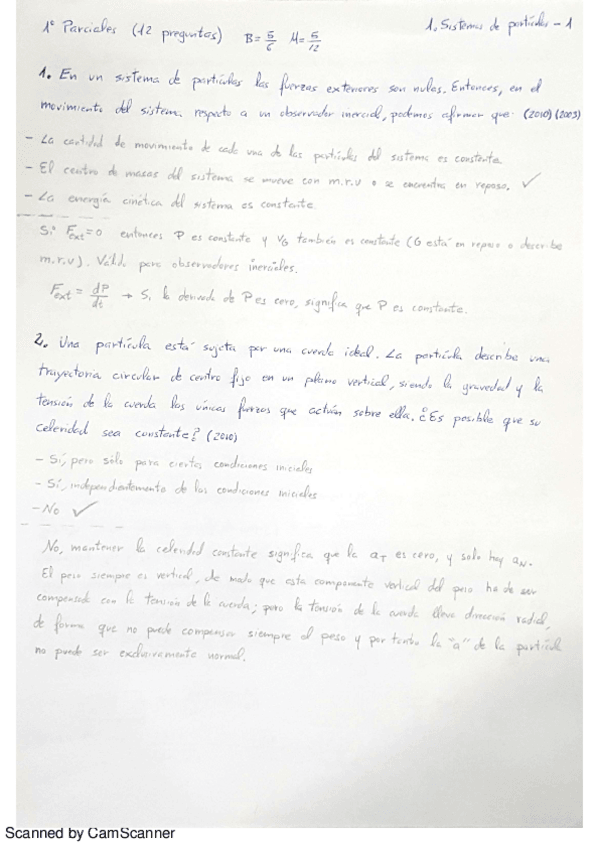 1º Parciales (12 preguntas) B = 5/6 M = 5/12
1. Sistemas de partículas - 1
1. En un sistema de partículas las fuerzas exteriores son nulas. Entonces, en el
movimiento del sistema respecto a un observador inercial, podemos afirmar que: (2010) (2003)
- La cantidad de movimiento de cada una de las partículas del sistema es constante
- El centro de masas del sistema se mueve con m.r.u o se encuentra en reposo. ✓
- La energía cinética del sistema es constante.
Si Fext = 0 entonces P es constante y VG también es constante (G está en reposo o describe
m.r.u). Válido para observadores inerciales.
Fext = dP/dt → Si la derivada de P es cero, significa que P es constante.
2. Una partícula está sujeta por una cuerda ideal. La partícula describe una
trayectoria circular de centro fijo en un plano vertical, siendo la gravedad y la
tensión de la cuerda las únicas fuerzas que actúan sobre ella. ¿Es posible que su
celeridad sea constante? (2010)
- Sí, pero sólo para ciertas condiciones iniciales
- Sí, independientemente de las condiciones iniciales
- No ✓
No, mantener la celeridad constante significa que la aT es cero, y solo hay aN.
El peso siempre es vertical, de modo que esta componente vertical del peso ha de ser
compensada con la tensión de la cuerda; pero la tensión de la cuerda lleva dirección radial,
de forma que no puede compensar siempre el peso y por tanto la "a" de la partícula
no puede ser exclusivamente normal.
Scanned by CamScanner